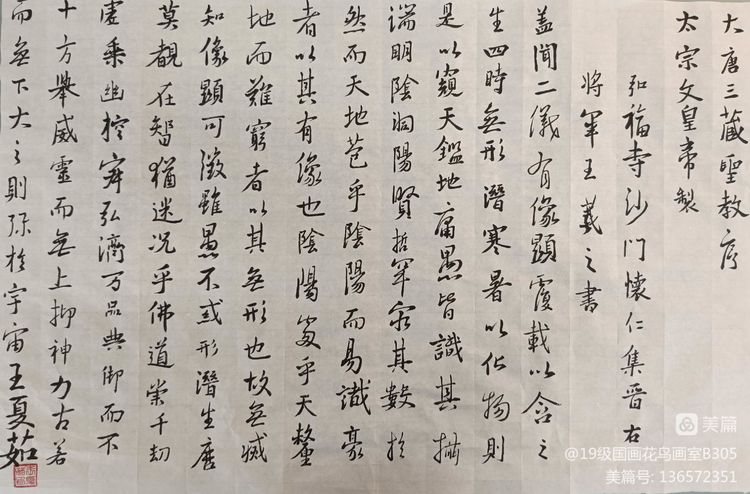 大唐三藏聖教序
太宗文皇帝製
弘福寺沙门懷仁集晉右
将軍王羲之書
盖聞二儀有像顯覆載以含之
生四時無形潛寒暑以化物則
是以窺天鑑地庸愚皆識其攝
端明陰洞陽賢哲罕窮其數於
然而天地苞乎陰陽而易識豪
者以其有像也陰陽處乎天釐
地而難窮者以其無形也故無滅
知像顯可徵雖愚不惑形潛生歷
莫覩在智猶迷況乎佛道崇千劫
虛乘幽控寂弘濟万品典御而不
十方舉威靈而無上抑神力古若
而無下大之則弥於宇宙王夏茹
美篇
@19级国画花鸟画室B305
美篇号: 136572351